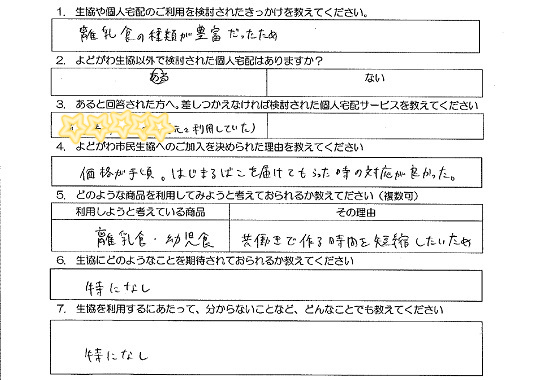 1. 生協や個人宅配のご利用を検討されたきっかけを教えてください。
離乳食の種類が豊富だったため
2. よどがわ生協以外で検討された個人宅配はありますか?
ある ない
3. あると回答された方へ。差しつかえなければ検討された個人宅配サービスを教えてください
元々利用していた)
4. よどがわ市民生協へのご加入を決められた理由を教えてください
価格が手頃。はじまるばこを届けてもらった時の対応が良かった。
5. どのような商品を利用してみようと考えておられるか教えてださい(複数可)
利用しようと考えている商品 その理由
離乳食・幼児食 共働きで作る時間を短縮したいため
6. 生協にどのようなことを期待されておられるか教えてください
特になし
7. 生協を利用するにあたって、分からないことなど、どんなことでも教えてください
特になし